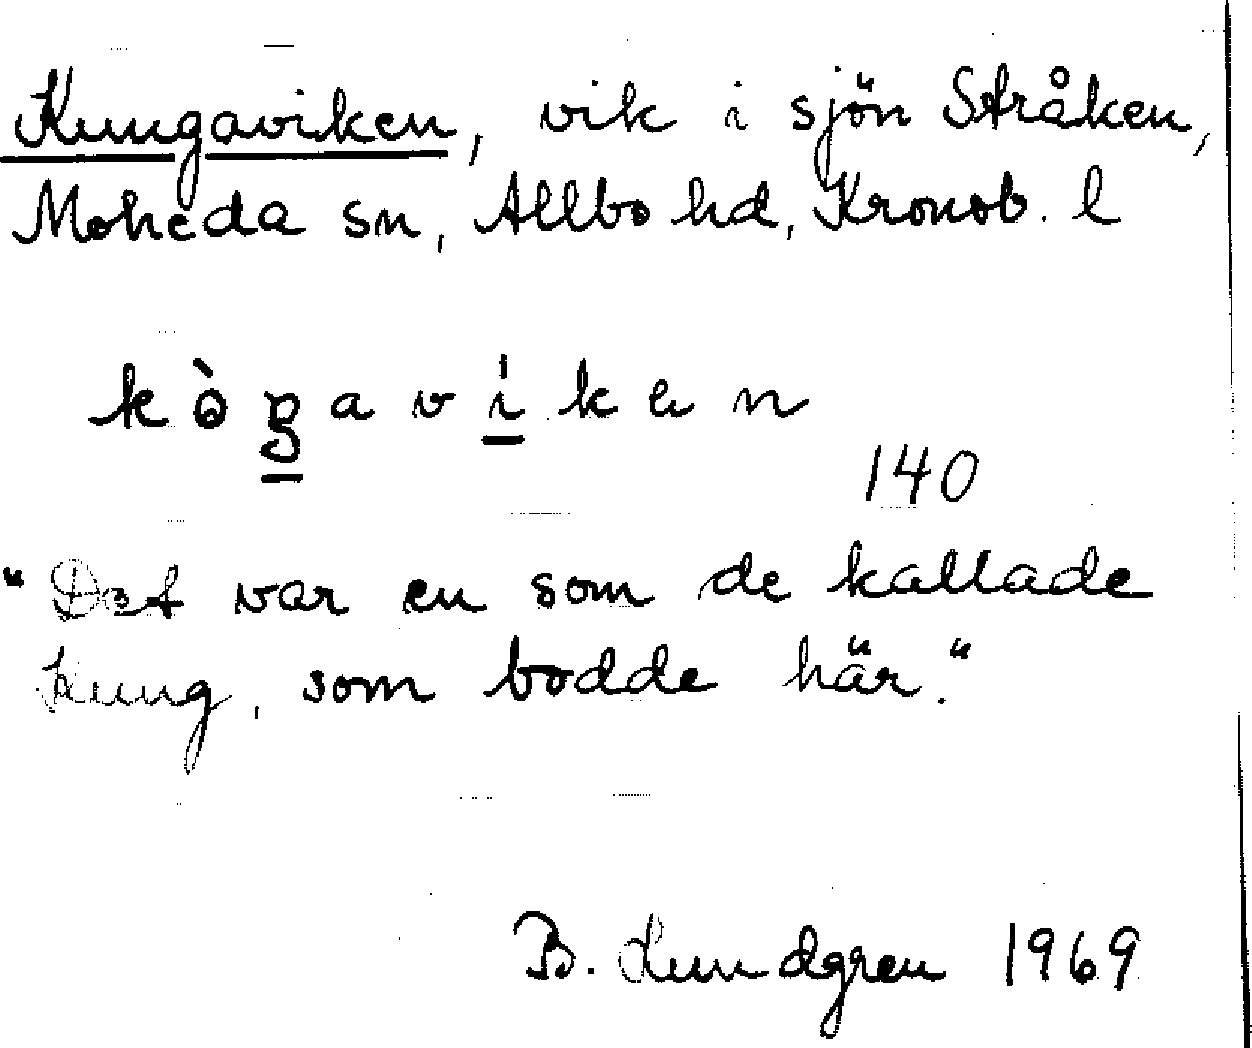 Kungaviken, vik i sjön Stråken,
Moheda sn, Allbo hd, Kronob. l
kòŋavíkən
140
"Det var en som de kallade
Kung, som bodde här."
B. Lundgren 1969